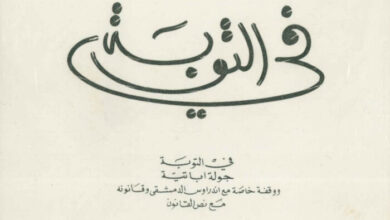 في التوبة
في التوبة
جولة آبائية
ووقفة خاصة مع اندراوس الدمشقي وقانونه
مع نص القانون